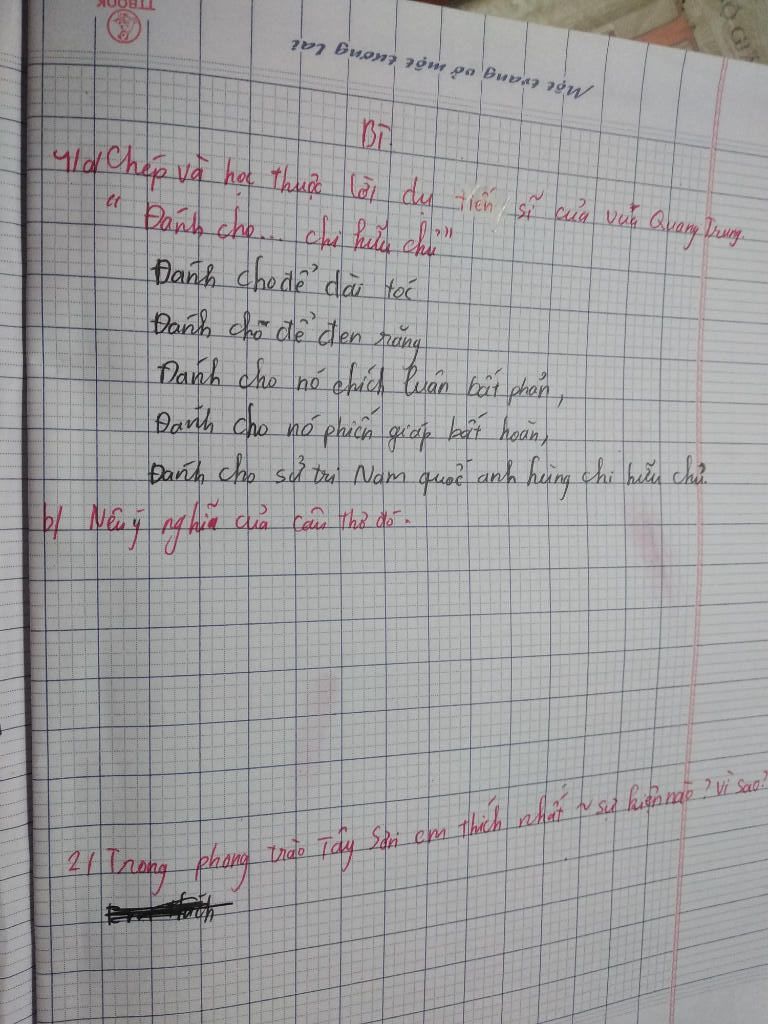 TTBOOK
Một trang vở một tương lai
BT
1/a/ Chép và học thuộc lời dụ tiến sĩ của vua Quang Trung.
“ Đánh cho... chi hữu chủ”
Đánh cho để dài tóc
Đánh cho để đen răng
Đánh cho nó chích luân bất phản,
Đánh cho nó phiến giáp bất hoàn,
Đánh cho sử tri Nam quốc anh hùng chi hữu chủ.
b/ Nêu ý nghĩa của câu thơ đó.
2/ Trong phong trào Tây Sơn em thích nhất ~ sự kiện nào? vì sao?